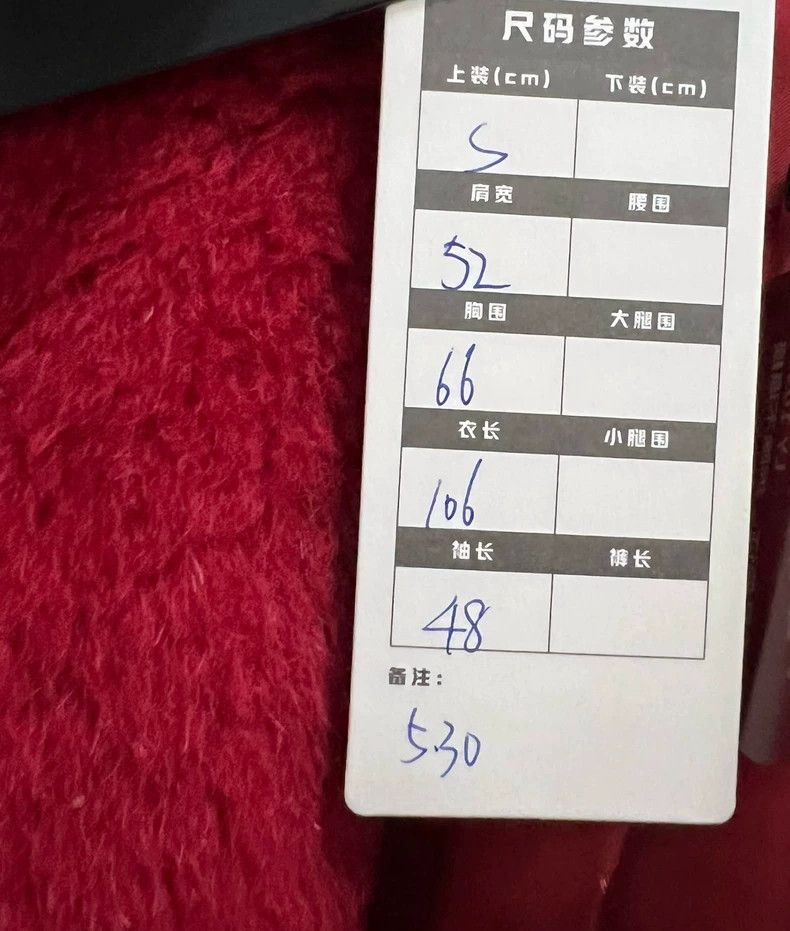 尺码参数
上装(cm) 下装(cm)
S
肩宽 腰围
52
胸围 大腿围
66
衣长 小腿围
106
袖长 裤长
48
备注:
530